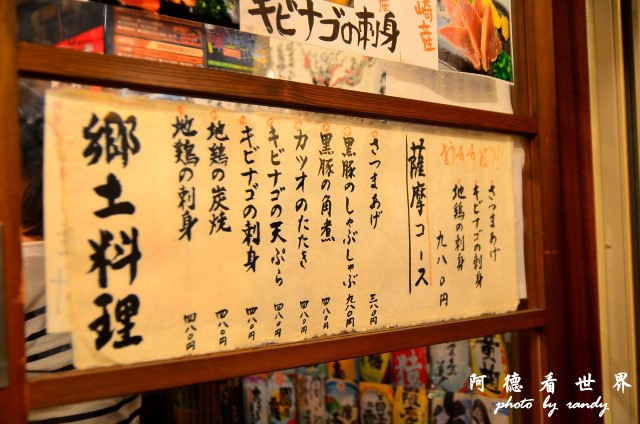 キビナゴの刺身
崎産
おすすめ
さつまあげ
キビナゴの刺身
地鶏の刺身
九八〇円
薩摩コース
さつまあげ 三八〇円
黒豚のしゃぶしゃぶ 九八〇円
黒豚の角煮 四八〇円
カツオのたたき 四八〇円
キビナゴの天ぷら 四八〇円
キビナゴの刺身 四八〇円
地鶏の炭焼 四八〇円
地鶏の刺身 四八〇円
郷土料理
阿德看世界
photo by randy